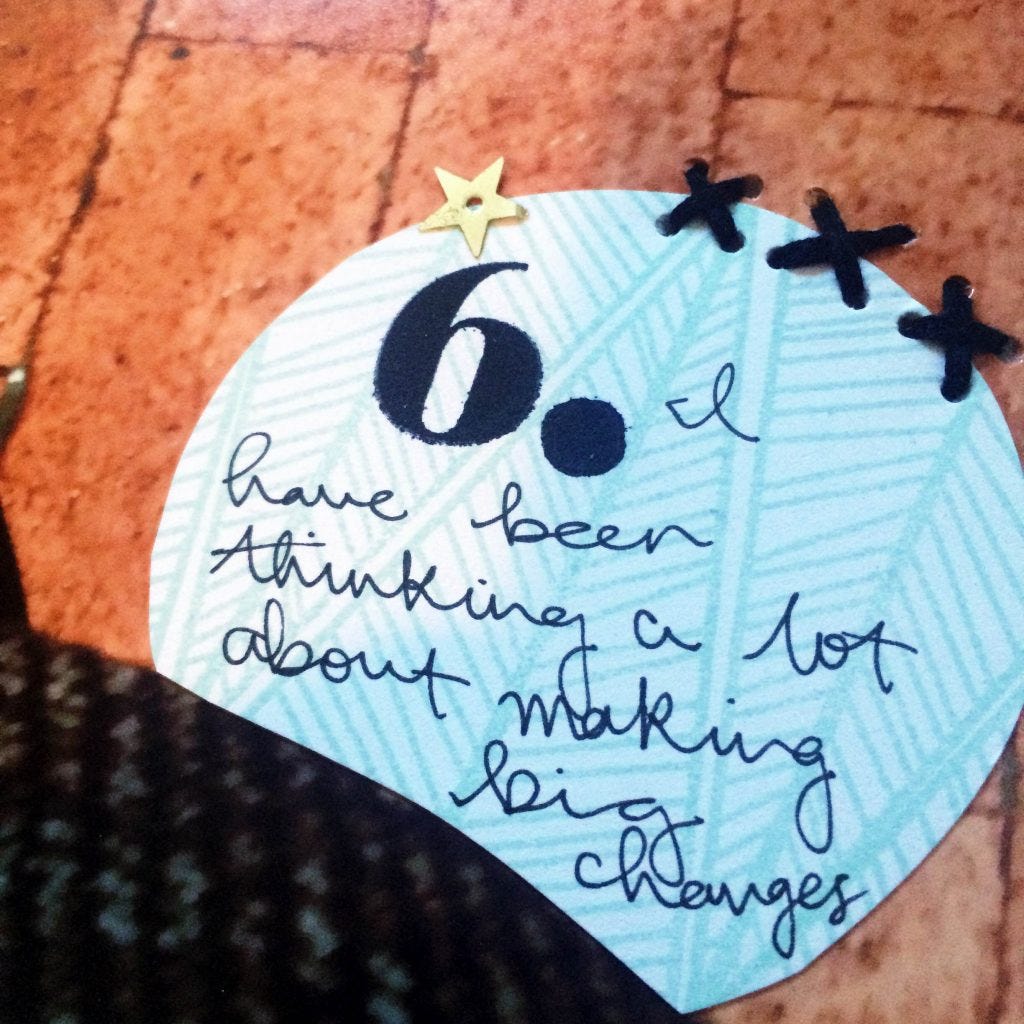 6. I
have been
thinking a lot
about making
big
changes